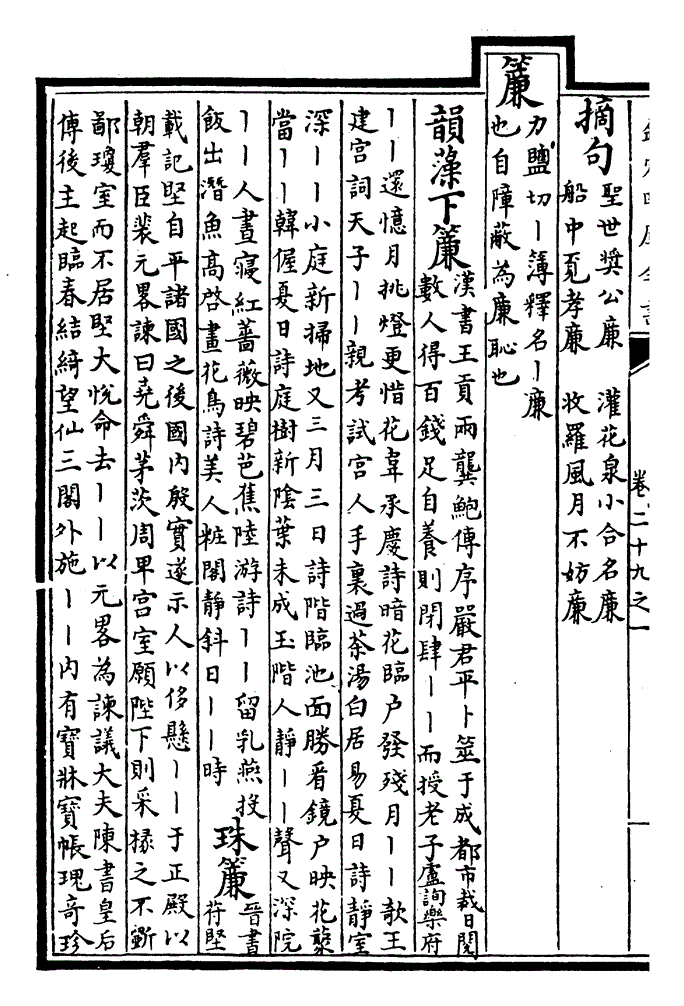 卷二十九之一
摘句
聖世奬公廉　灌花泉小合名廉
船中覓孝廉　收羅風月不妨廉
簾
力鹽切丨簿釋名丨廉
也自障蔽為廉恥也
韻藻下簾
漢書王貢兩龔鮑傳序嚴君平卜筮于成都市裁日閱
數人得百錢足自養則閉肆丨丨而授老子盧詢樂府
丨丨還憶月挑燈更惜花韋承慶詩暗花臨户發殘月丨丨歌王
建宫詞天子丨丨親考試宫人手裏過茶湯白居易夏日詩靜室
深丨丨小庭新掃地又三月三日詩階臨池面勝看鏡户映花藂
當丨丨韓偓夏日詩庭樹新陰葉未成玉階人靜丨丨聲又深院
丨丨人晝寢紅薔薇映碧芭蕉陸游詩丨丨留乳燕投
飯出潛魚高啓畫花鳥詩美人粧閣靜斜日丨丨時
珠簾
晉書
苻堅
載記堅自平諸國之後國内殷實遂示人以侈懸丨丨于正殿以
朝羣臣裴元畧諫曰堯舜茅茨周卑宫室願陛下則采椽之不斵
鄙瓊室而不居堅大悦命去丨丨以元畧為諫議大夫陳書皇后
傳後主起臨春結綺望仙三閣外施丨丨内有寶牀寶帳瑰奇珍